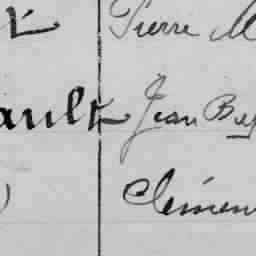 t Pierre M
ault Jean Bap
Clémen